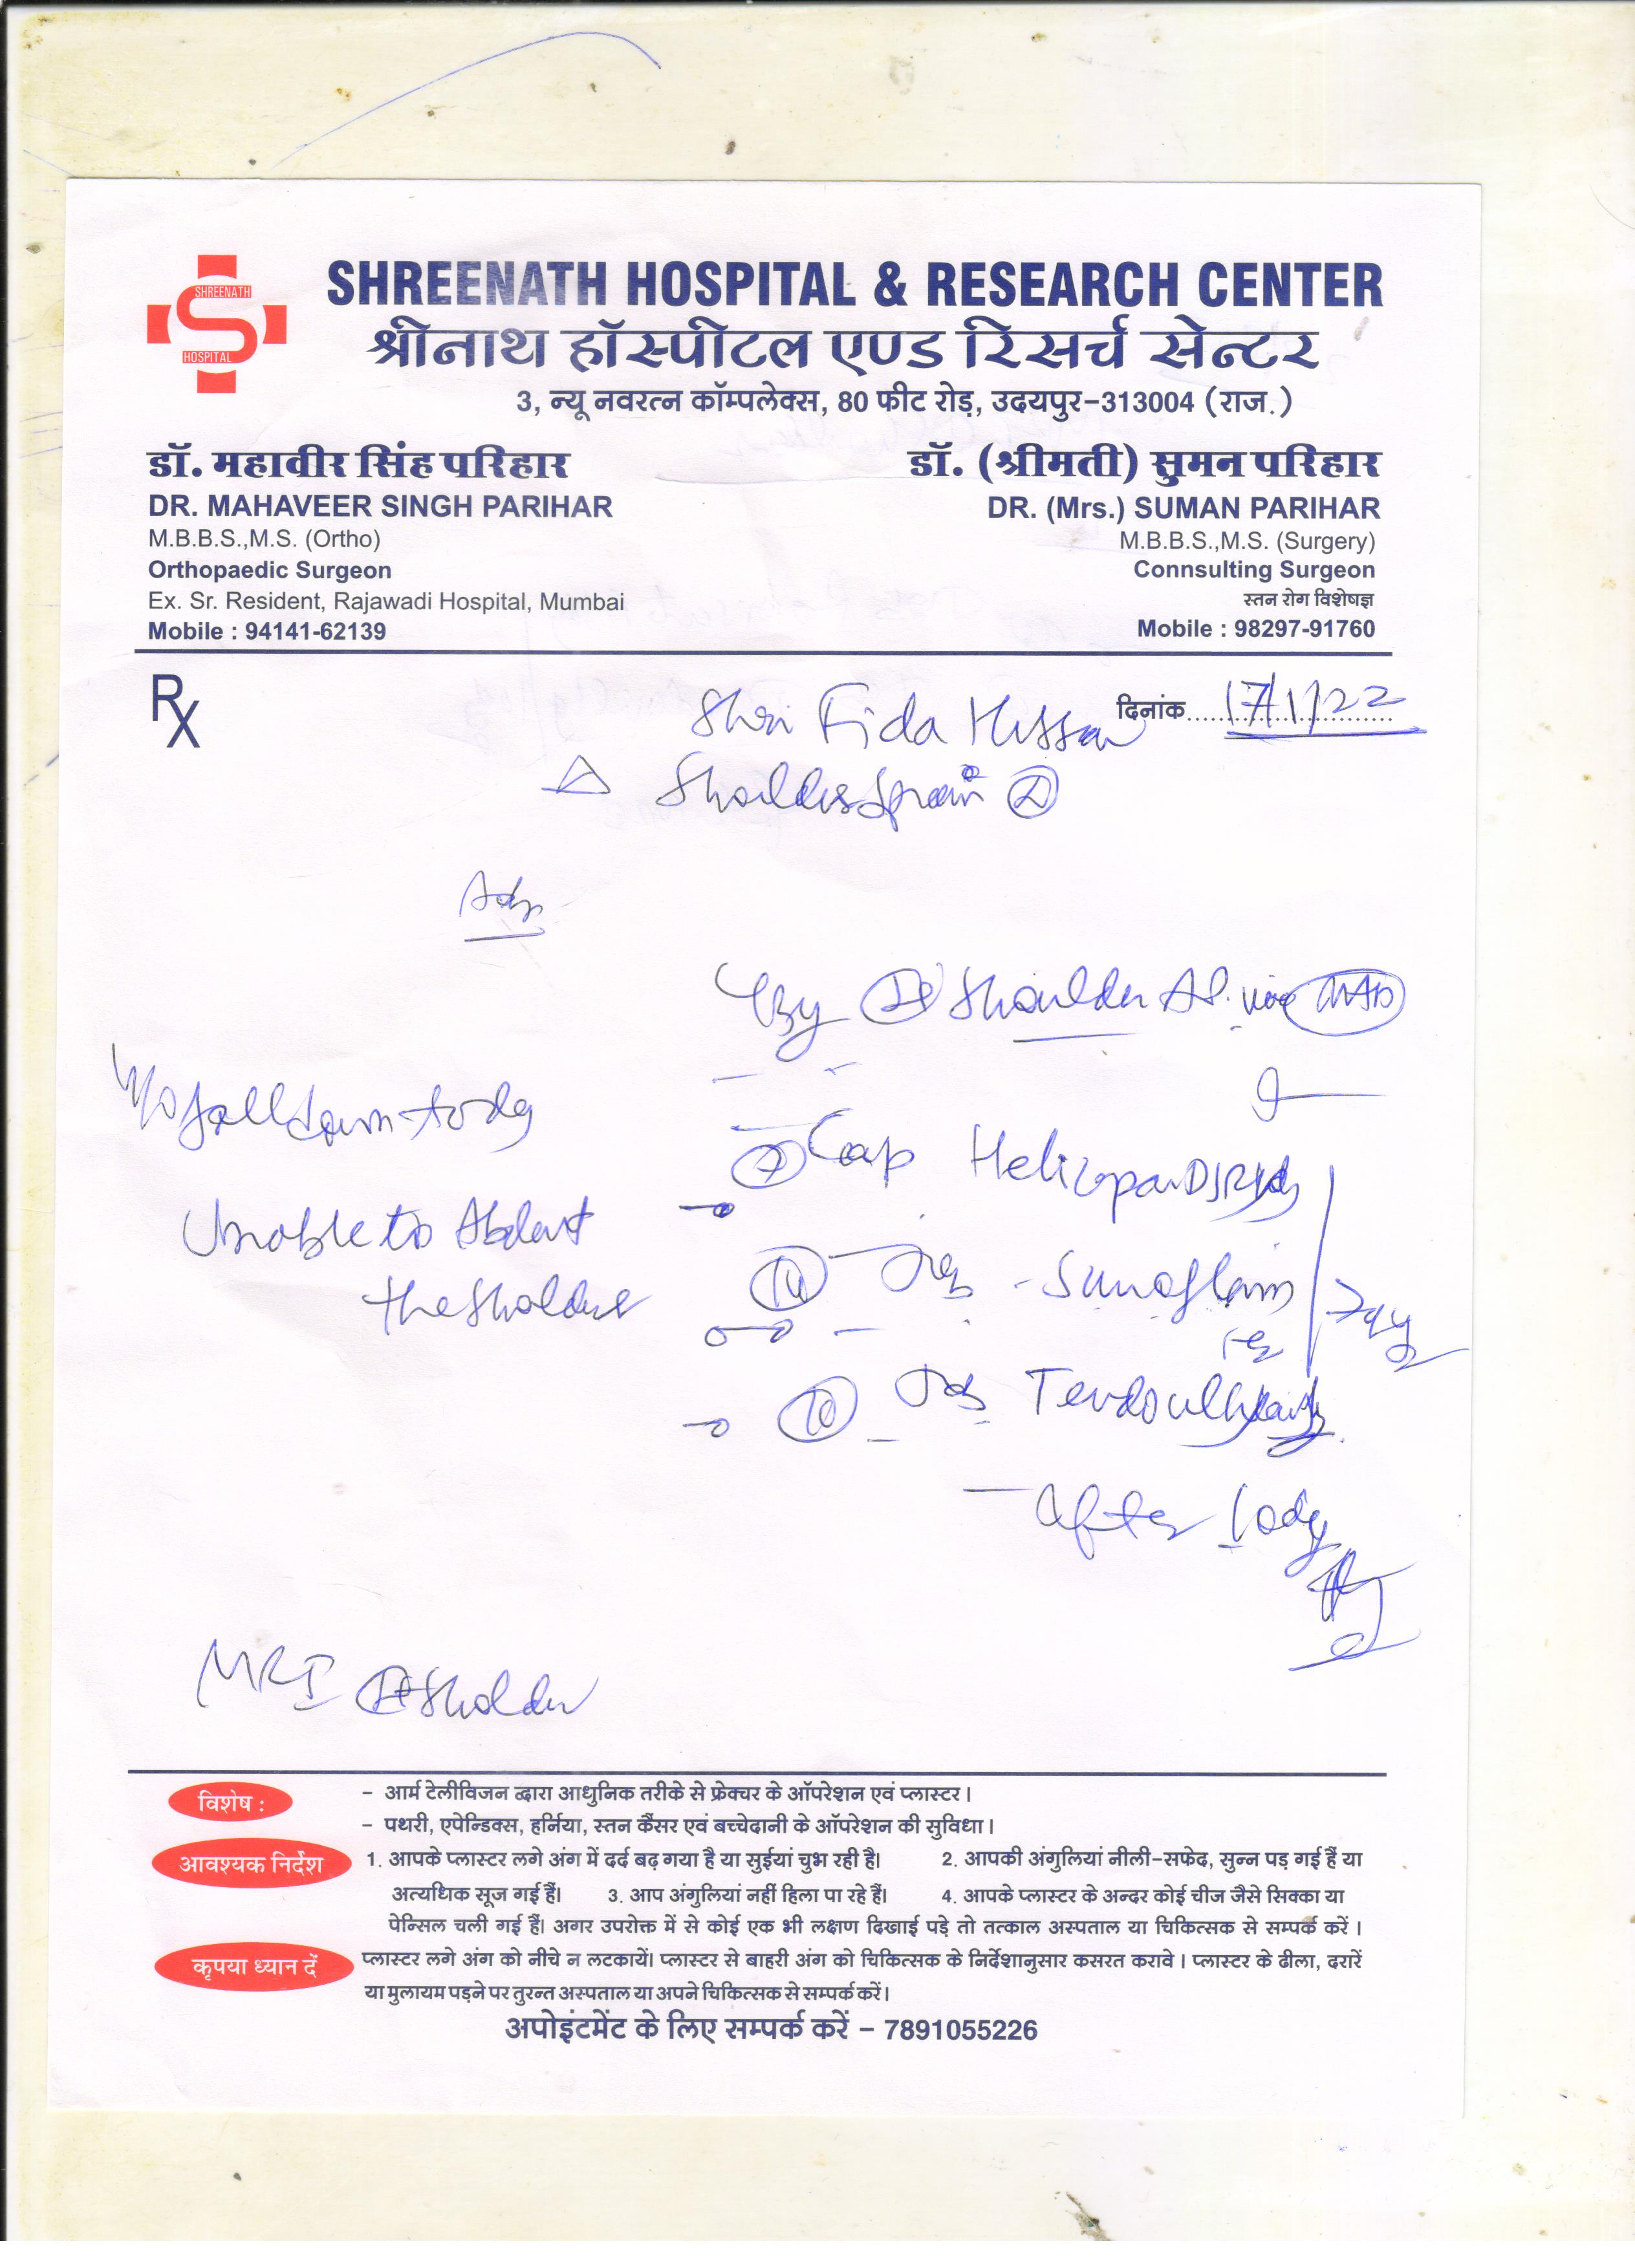 SHREENATH
HOSPITAL
SHREENATH HOSPITAL & RESEARCH CENTER
श्रीनाथ हॉस्पीटल एण्ड रिसर्च सेन्टर
3, न्यू नवरत्न कॉम्पलेक्स, 80 फीट रोड़, उदयपुर-313004 (राज.)
डॉ. महावीर सिंह परिहार
DR. MAHAVEER SINGH PARIHAR
M.B.B.S.,M.S. (Ortho)
Orthopaedic Surgeon
Ex. Sr. Resident, Rajawadi Hospital, Mumbai
Mobile : 94141-62139
डॉ. (श्रीमती) सुमन परिहार
DR. (Mrs.) SUMAN PARIHAR
M.B.B.S.,M.S. (Surgery)
Connsulting Surgeon
स्तन रोग विशेषज्ञ
Mobile : 98297-91760
Rx
दिनांक 17/1/22
Shri Fida Hussan
△ Shoulder Sprain
Adv
Shoulder AP view
fall down today
Unable to Abduct
the Sholder
Cap Helicopan
Sunoflam
After
MRI Sholder
विशेष :
- आर्म टेलीविजन द्वारा आधुनिक तरीके से फ्रेक्चर के ऑपरेशन एवं प्लास्टर।
- पथरी, एपेन्डिक्स, हर्निया, स्तन कैंसर एवं बच्चेदानी के ऑपरेशन की सुविधा।
आवश्यक निर्देश
1. आपके प्लास्टर लगे अंग में दर्द बढ़ गया है या सुईयां चुभ रही है। 2. आपकी अंगुलियां नीली-सफेद, सुन्न पड़ गई हैं या
अत्यधिक सूज गई हैं। 3. आप अंगुलियां नहीं हिला पा रहे हैं। 4. आपके प्लास्टर के अन्दर कोई चीज जैसे सिक्का या
पेन्सिल चली गई हैं। अगर उपरोक्त में से कोई एक भी लक्षण दिखाई पड़े तो तत्काल अस्पताल या चिकित्सक से सम्पर्क करें।
कृपया ध्यान दें
प्लास्टर लगे अंग को नीचे न लटकायें। प्लास्टर से बाहरी अंग को चिकित्सक के निर्देशानुसार कसरत करावे। प्लास्टर के ढीला, दरारें
या मुलायम पड़ने पर तुरन्त अस्पताल या अपने चिकित्सक से सम्पर्क करें।
अपोइंटमेंट के लिए सम्पर्क करें - 7891055226